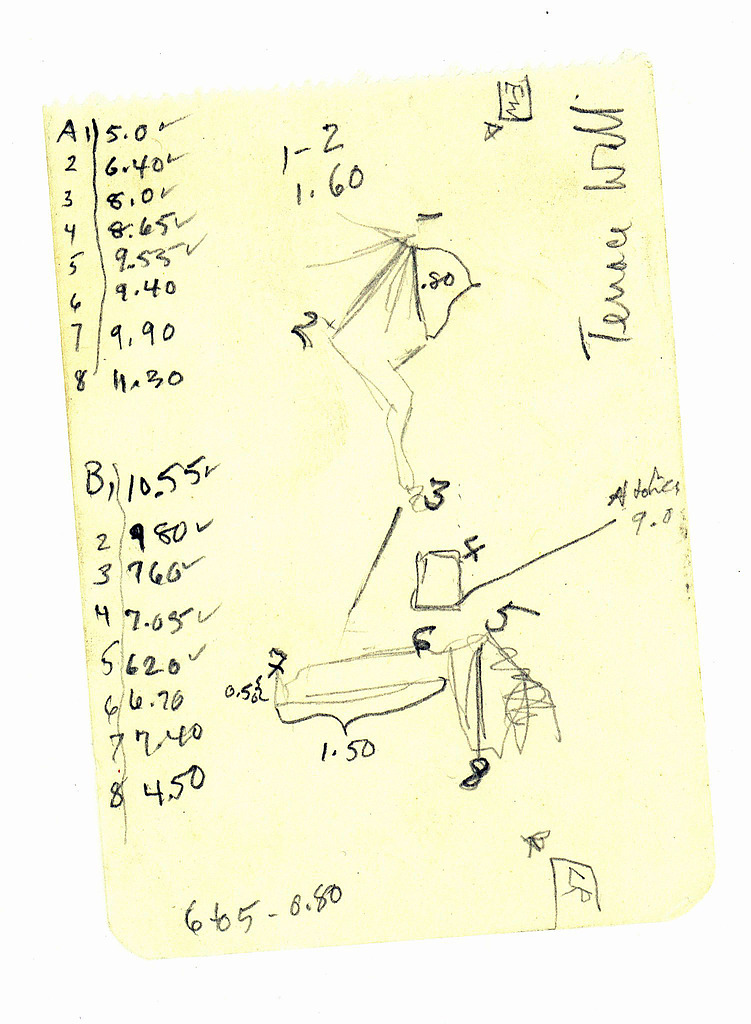 A 1 5.0 ✓
2 6.40 ✓
3 8.0 ✓
4 8.65 ✓
5 9.55 ✓
6 9.40
7 9.90
8 11.30
B, 10.55 ✓
2 9 80 ✓
3 7 60 ✓
4 7.05 ✓
5 6 20 ✓
6 6.70
7 7.40
8 4.50
6 to 5 - 0.80
1-2
1.60
1
.80
2
3
4
9.0
5
6
7
0.5
1.50
8
A
B
Terrace Wall